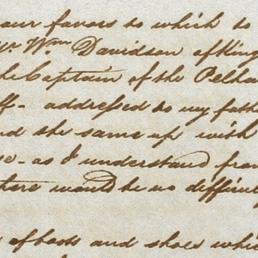 our favors to which to
Mr Wm Davidson of King
the Captain of the Pelha
ff- addressed to my fath
nd the same up with
as I understand from
there would be no difficul
of boots and shoes whic